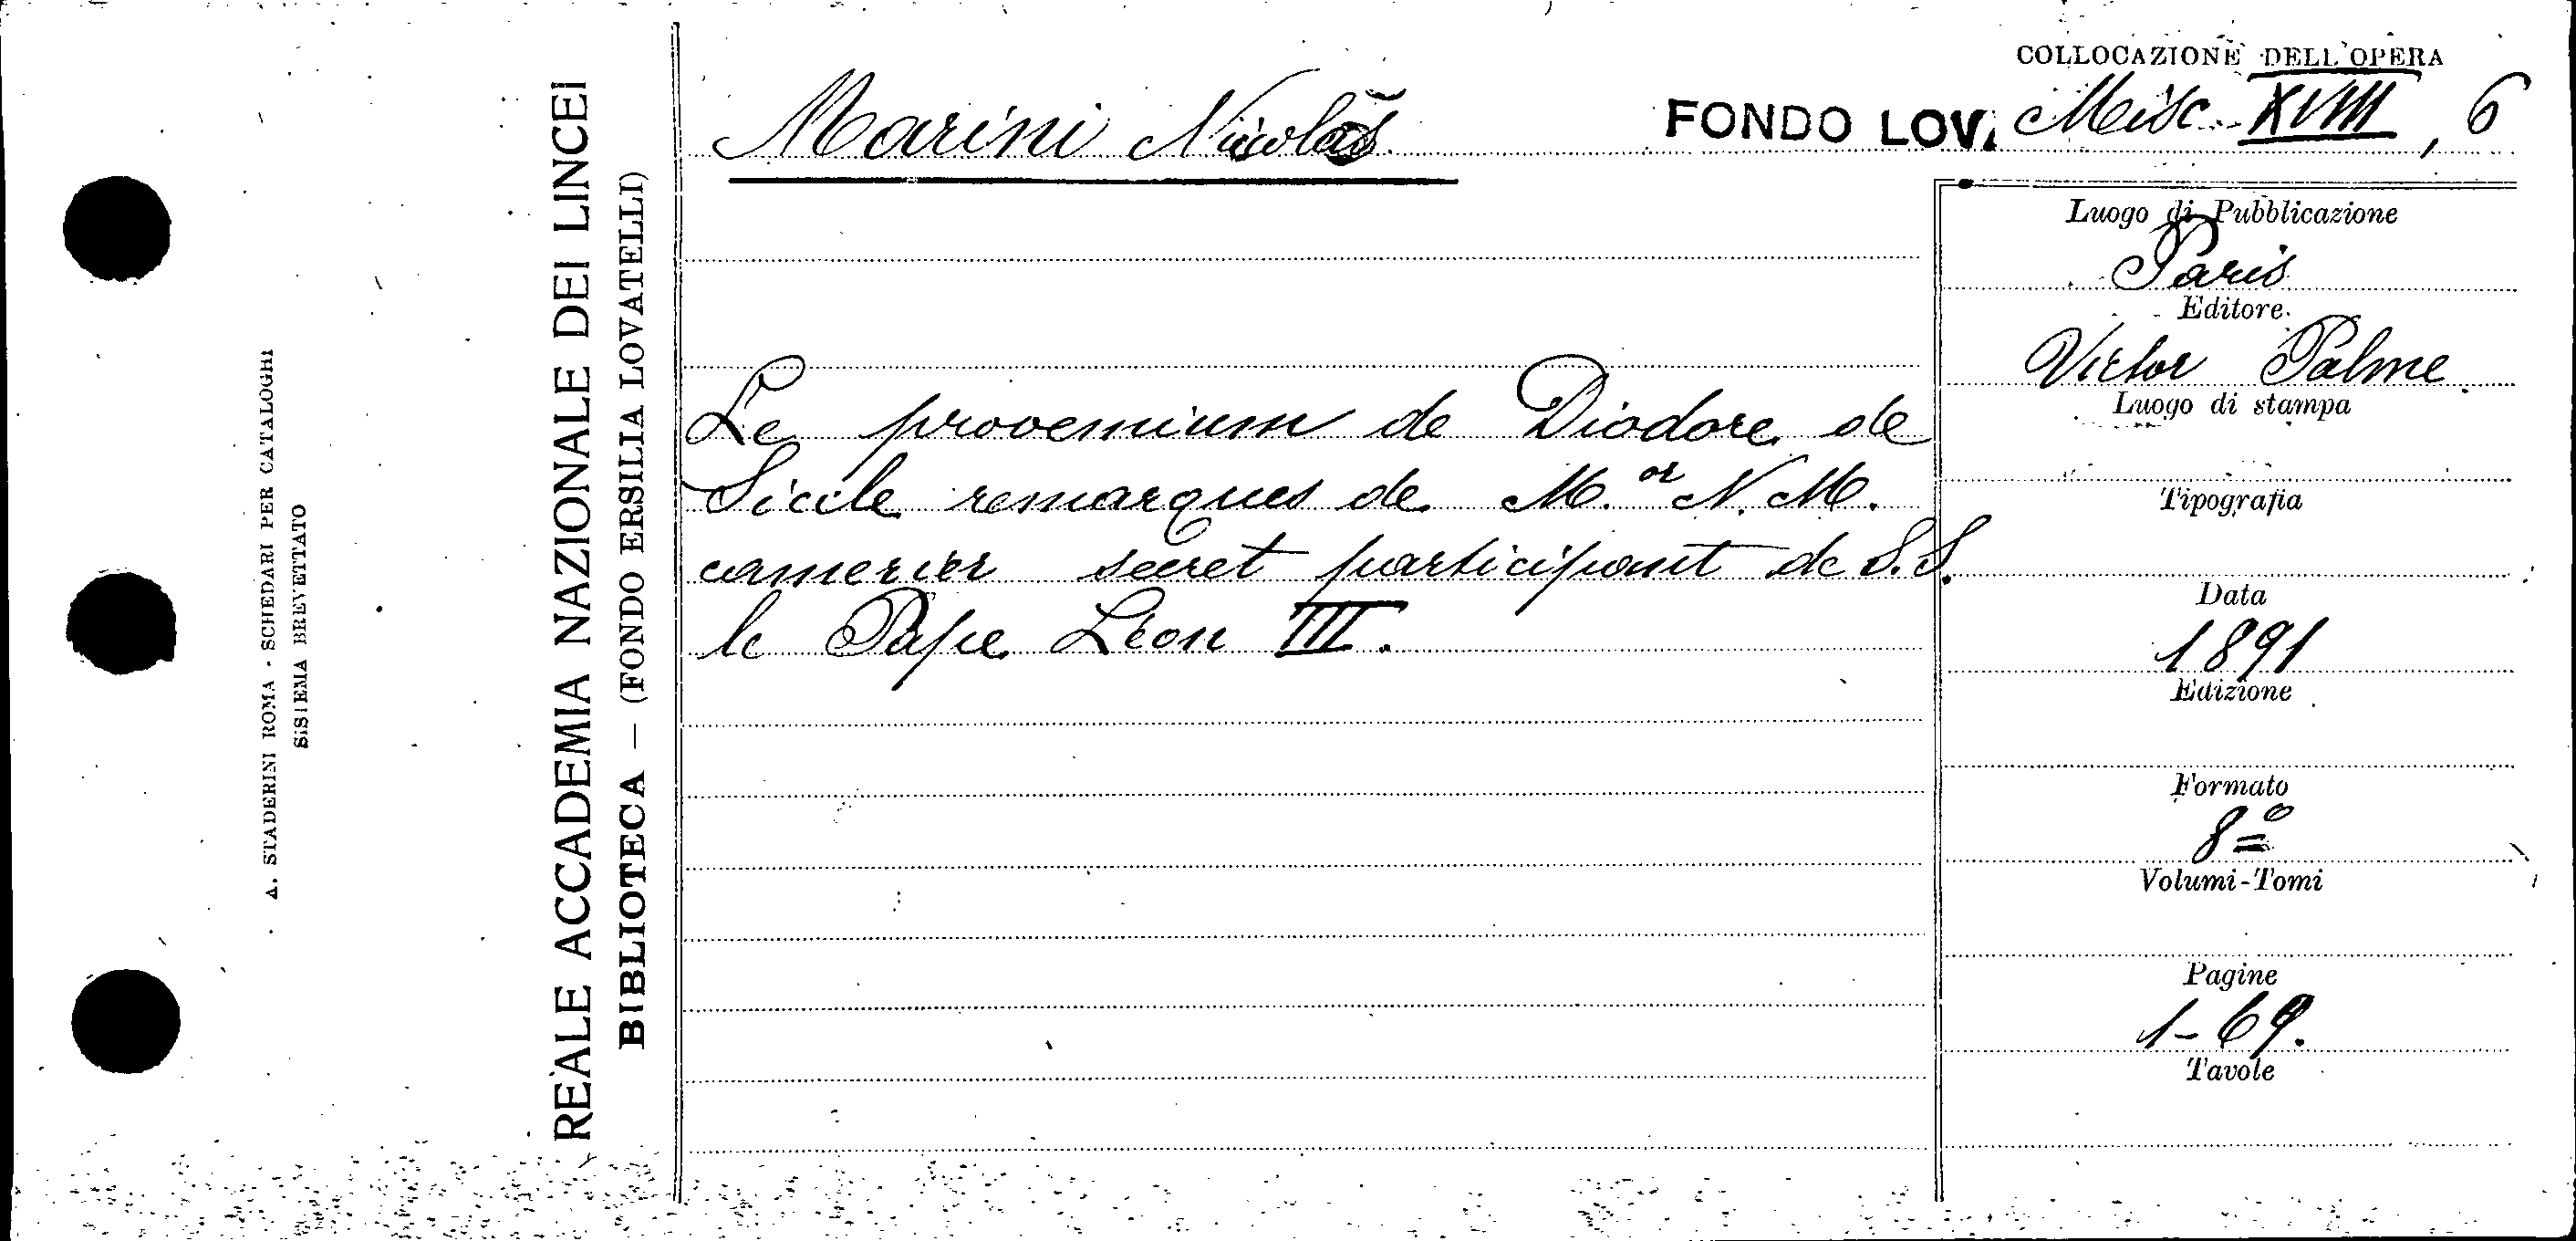 COLLOCAZIONE DELL'OPERA
Marini Nicolas
FONDO LOV. Misc. XVIII, 6
Le provemium de Diodore de
Sicile remarques de M.or N. M.
camerier secret participant de S. S.
le Pape Léon III.
Luogo di Pubblicazione
Paris
Editore
Victor Palme
Luogo di stampa
Tipografia
Data
1891
Edizione
Formato
8º
Volumi-Tomi
Pagine
1-69.
Tavole
REALE ACCADEMIA NAZIONALE DEI LINCEI
BIBLIOTECA — (FONDO ERSILIA LOVATELLI)
A. STADERINI ROMA - SCHEDARI PER CATALOGHI
SISTEMA BREVETTATO